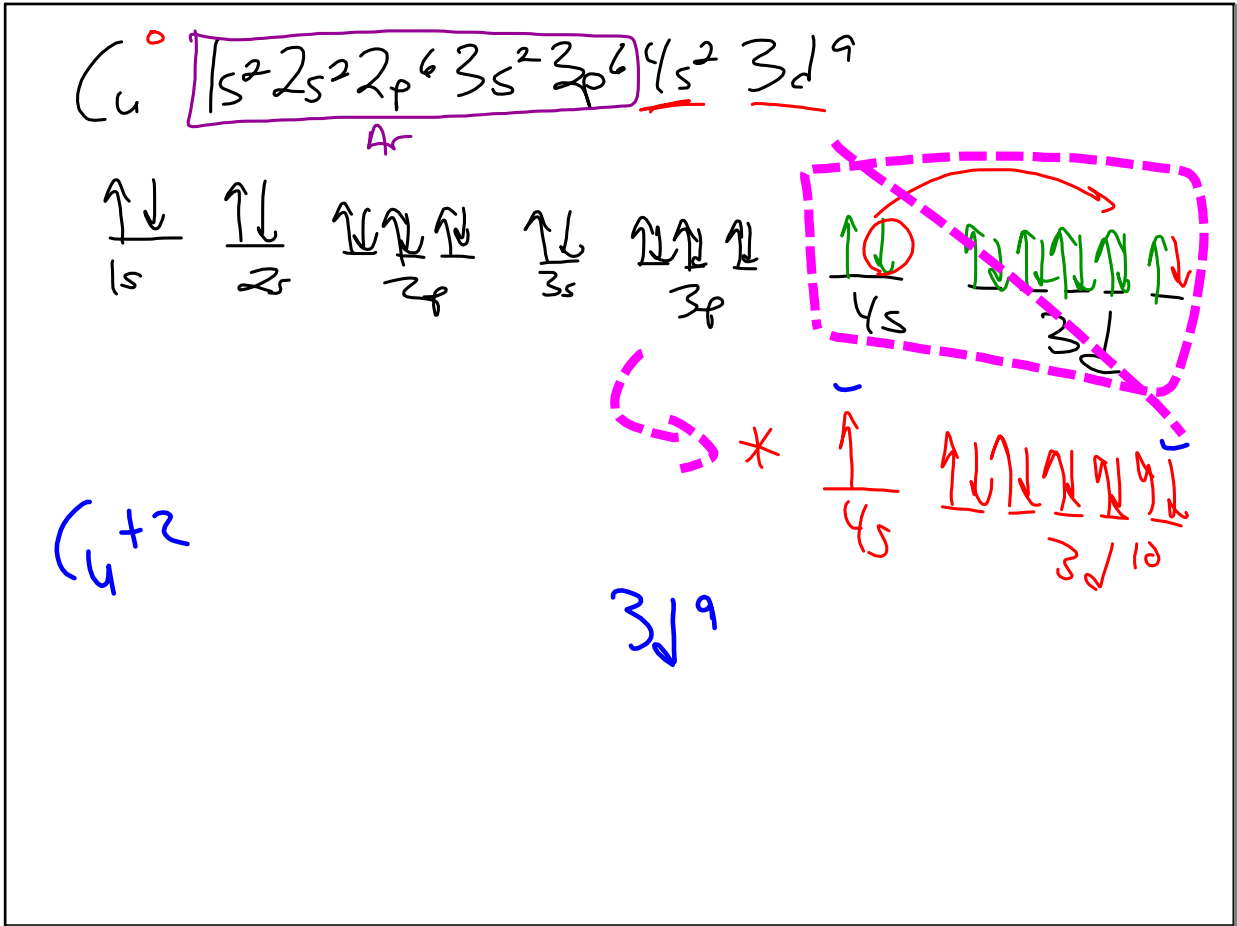 Cu⁰ 1s² 2s² 2p⁶ 3s² 3p⁶ 4s² 3d⁹
Ar
↑↓ ↑↓ ↑↓ ↑↓ ↑↓ ↑↓ ↑↓ ↑↓ ↑↓ ↑↓ ↑↓ ↑↓ ↑↓ ↑↓ ↑↓
1s 2s 2p 3s 3p 4s 3d
* ↑ ↑↓ ↑↓ ↑↓ ↑↓ ↑↓
4s 3d¹⁰
Cu⁺²
3d⁹